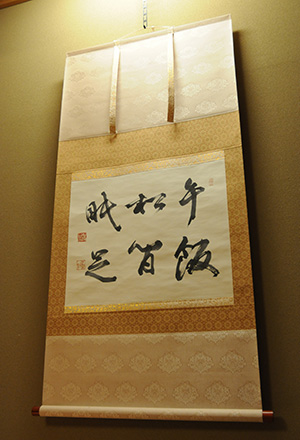 午飯
松間
眠足